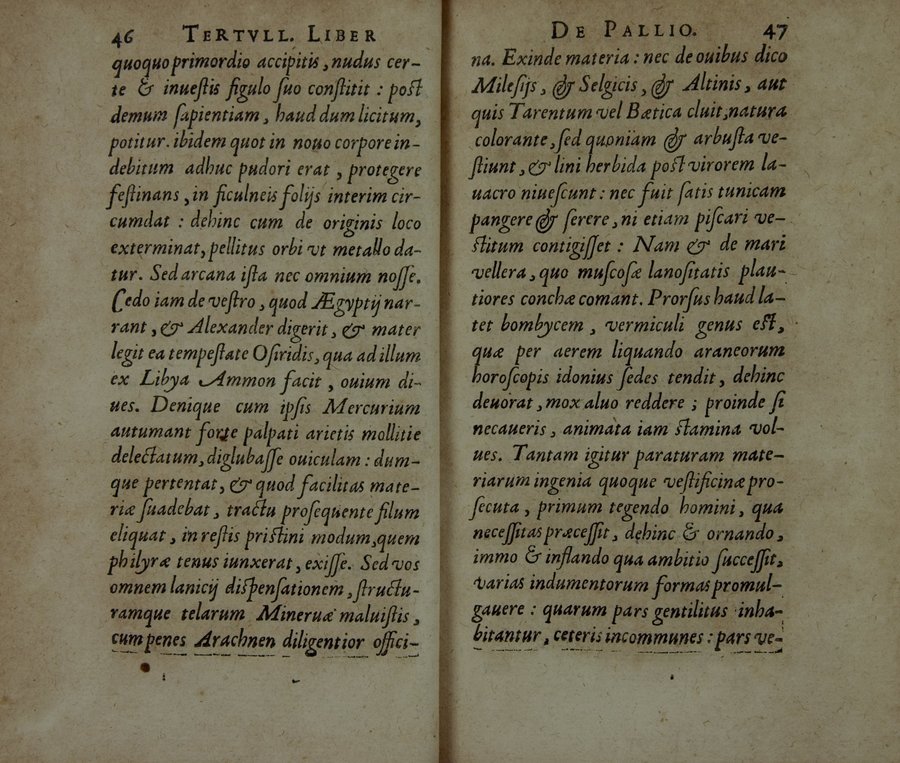 46 TERTVLL. LIBER
quoquo primordio accipitis, nudus cer-
te & inueſtis figulo ſuo conſtitit : poſt
demum ſapientiam, haud dum licitum,
potitur. ibidem quot in nouo corpore in-
debitum adhuc pudori erat, protegere
feſtinans, in ficulneis folijs interim cir-
cumdat : dehinc cum de originis loco
exterminat, pellitus orbi vt metallo da-
tur. Sed arcana iſta nec omnium noſſe.
Cedo iam de veſtro, quod Ægyptij nar-
rant, & Alexander digerit, & mater
legit ea tempeſtate Oſiridis, qua ad illum
ex Libya Ammon facit, ouium di-
ues. Denique cum ipſis Mercurium
autumant forte palpati arietis mollitie
delectatum, diglubaſſe ouiculam : dum-
que pertentat, & quod facilitas mate-
riæ ſuadebat, tractu proſequente filum
eliquat, in reſtis priſtini modum, quem
philyræ tenus iunxerat, exiſſe. Sed vos
omnem lanicij diſpenſationem, ſtructu-
ramque telarum Mineruæ maluiſtis,
cum penes Arachnen diligentior offici-
DE PALLIO. 47
na. Exinde materia : nec de ouibus dico
Mileſijs, & Selgicis, & Altinis, aut
quis Tarentum vel Bætica cluit, natura
colorante, ſed quoniam & arbuſta ve-
ſtiunt, & lini herbida poſt virorem la-
uacro niueſcunt : nec fuit ſatis tunicam
pangere & ſerere, ni etiam piſcari ve-
ſtitum contigiſſet : Nam & de mari
vellera, quo muſcoſæ lanoſitatis plau-
tiores conchæ comant. Prorſus haud la-
tet bombycem, vermiculi genus eſt,
quæ per aerem liquando araneorum
horoſcopis idonius ſedes tendit, dehinc
deuorat, mox aluo reddere ; proinde ſi
necaueris, animata iam ſtamina vol-
ues. Tantam igitur paraturam mate-
riarum ingenia quoque veſtificinæ pro-
ſecuta, primum tegendo homini, qua
neceſſitas præceſſit, dehinc & ornando,
immo & inflando qua ambitio ſucceſſit,
varias indumentorum formas promul-
gauere : quarum pars gentilitus inha-
bitantur, ceteris incommunes : pars ve-